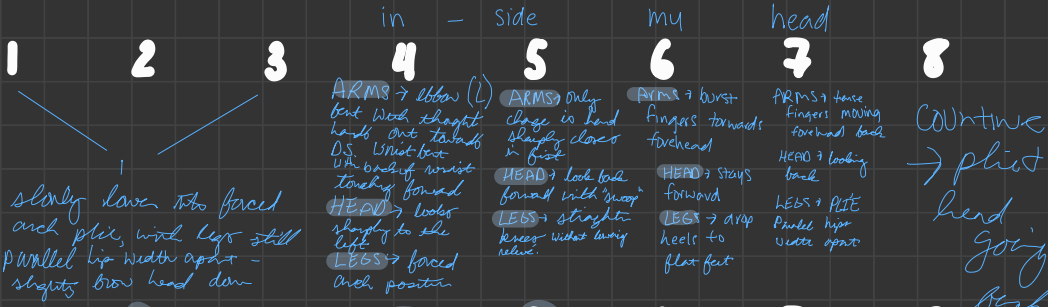 in - side my head
1 2 3 4 5 6 7 8
slowly lower into forced
arch plie, with legs still
parallel hip width apart -
slightly bow head down
ARMS → elbow (L)
bent with
hand out towards
DS. Wrist bent
with back of wrist
forward
HEAD → looks
sharply to the
left
LEGS → forced
arch position
ARMS → only
change is hand
sharply closes
in fist
HEAD → look back
forward with "swoop"
LEGS → straighten
knees - without
relevé.
Arms → burst
fingers towards
forehead
HEAD → stays
forward
LEGS → drop
heels to
flat feet
ARMS →
fingers moving
forehead back
HEAD → looking
back
LEGS → PLIE
Parallel hips
width apart
continue
→ plie
head
going